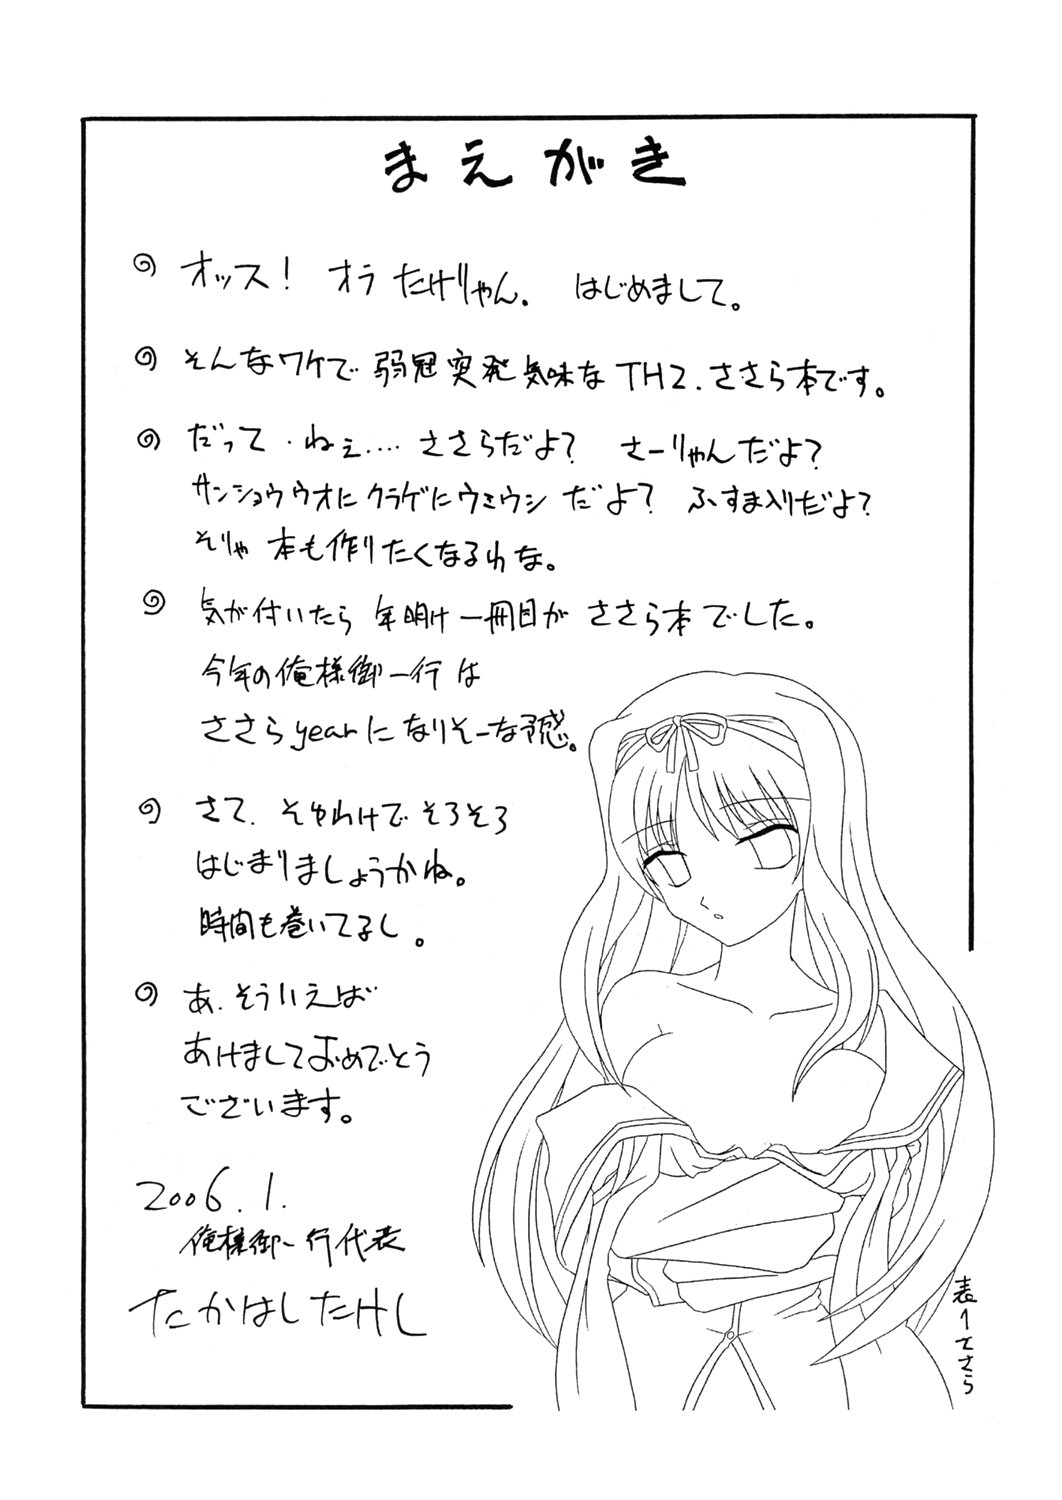 まえがき
オッス！ オラ たけりゃん. はじめまして。
そんなワケで 弱冠突発気味な TH2. ささら本です。
だって・ねぇ.... ささらだよ？ さーりゃんだよ？
サンショウウオに クラゲに ウミウシ だよ？ ふすま入りだよ？
そりゃ 本も作りたくなるわな。
気が付いたら 年明け一冊目が ささら本でした。
今年の俺様御一行は
ささら yearに なりそーな予感。
さて. そゆわけで そろそろ
はじまりましょうかね。
時間も巻いてるし。
あ. そういえば
あけましておめでとう
ございます。
2006.1.
俺様御一行代表
たかはしたけし
ささら